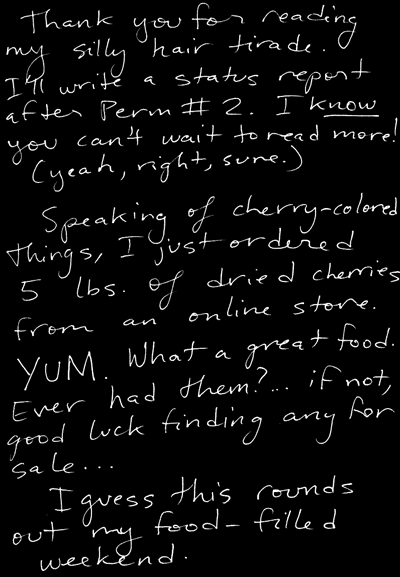 Thank you for reading
my silly hair tirade.
I'll write a status report
after Perm # 2. I know
you can't wait to read more!
(yeah, right, sure.)
Speaking of cherry-colored
things, I just ordered
5 lbs. of dried cherries
from an online store.
YUM. What a great food.
Ever had them?... if not,
good luck finding any for
sale...
I guess this rounds
out my food-filled
weekend.